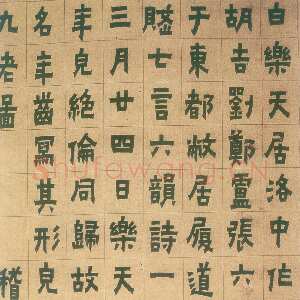 白樂天居洛中伯
胡吉劉鄭盧張六
于東都敝居履道
賦七言六韻詩一
三月廿四日樂天
年皃絕倫同歸故
名年齒寫其形皃
九老圖 稽
Shufawang.cn